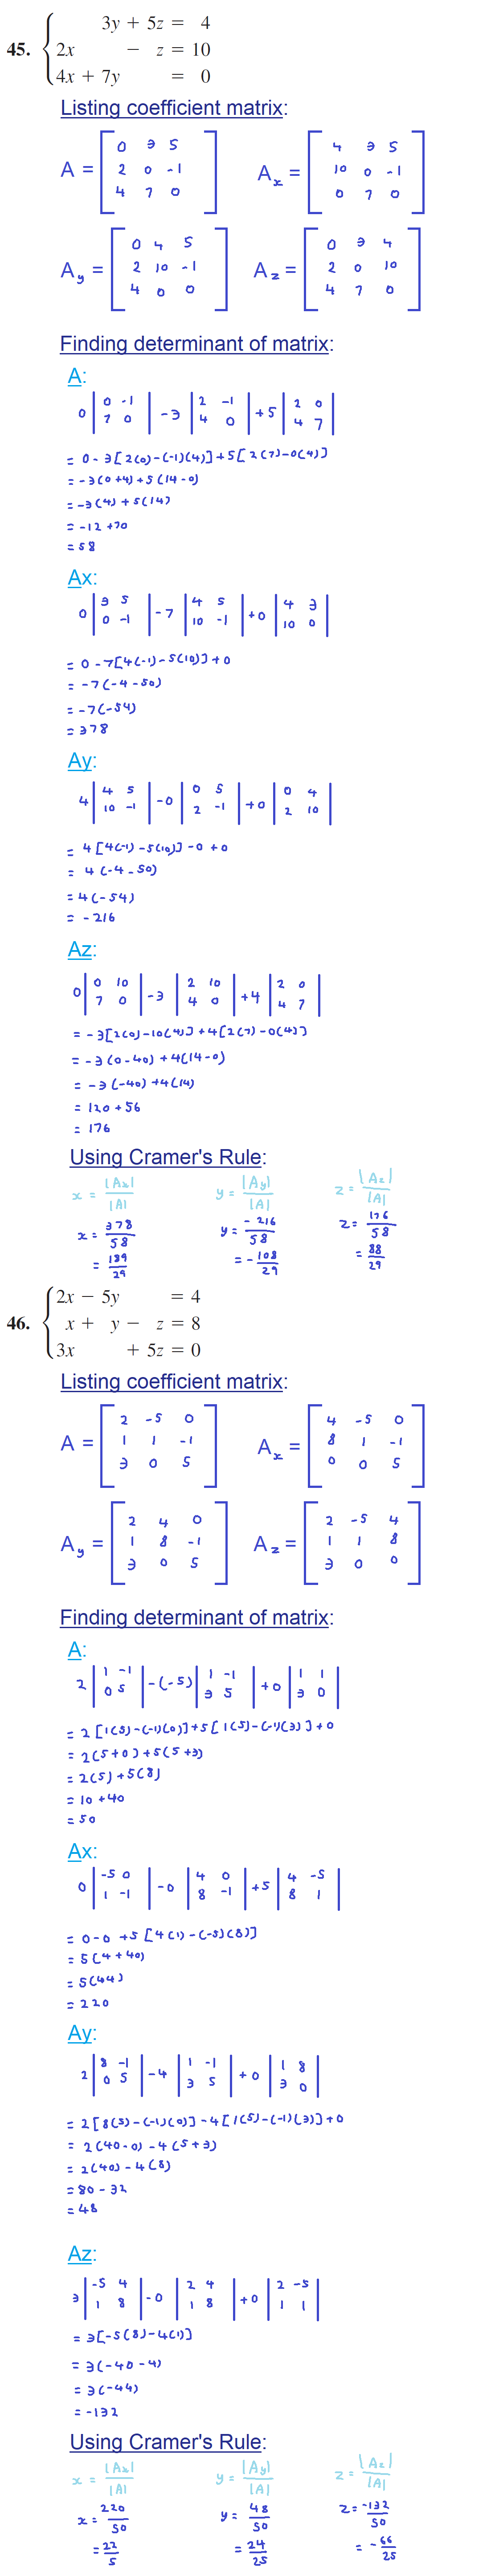 45. 3y + 5z = 4
2x - z = 10
4x + 7y = 0
Listing coefficient matrix:
A = [ 0 3 5
2 0 -1
4 7 0 ]
Ax = [ 4 3 5
10 0 -1
0 7 0 ]
Ay = [ 0 4 5
2 10 -1
4 0 0 ]
Az = [ 0 3 4
2 0 10
4 7 0 ]
Finding determinant of matrix:
A:
0 | 0 -1 | -3 | 2 -1 | +5 | 2 0 |
| 7 0 | | 4 0 | | 4 7 |
= 0 - 3[2(0)-(-1)(4)]+5[2(7)-0(4)]
= -3(0+4)+5(14-0)
= -3(4)+5(14)
= -12+70
= 58
Ax:
0 | 3 5 | -7 | 4 5 | +0 | 4 3 |
| 0 -1 | | 10 -1 | | 10 0 |
= 0-7[4(-1)-5(10)]+0
= -7(-4-50)
= -7(-54)
= 378
Ay:
4 | 4 5 | -0 | 0 5 | +0 | 0 4 |
| 10 -1 | | 2 -1 | | 2 10 |
= 4[4(-1)-5(10)]-0+0
= 4(-4-50)
= 4(-54)
= -216
Az:
0 | 0 10 | -3 | 2 10 | +4 | 2 0 |
| 7 0 | | 4 0 | | 4 7 |
= -3[2(0)-10(4)]+4[2(7)-0(4)]
= -3(0-40)+4(14-0)
= -3(-40)+4(14)
= 120+56
= 176
Using Cramer's Rule:
x = |Ax|/|A| y = |Ay|/|A| z = |Az|/|A|
x = 378/58 y = -216/58 z = 176/58
= 189/29 = -108/29 = 88/29
46. 2x - 5y = 4
x + y - z = 8
3x + 5z = 0
Listing coefficient matrix:
A = [ 2 -5 0
1 1 -1
3 0 5 ]
Ax = [ 4 -5 0
8 1 -1
0 0 5 ]
Ay = [ 2 4 0
1 8 -1
3 0 5 ]
Az = [ 2 -5 4
1 1 8
3 0 0 ]
Finding determinant of matrix:
A:
2 | 1 -1 | -(-5) | 1 -1 | +0 | 1 1 |
| 0 5 | | 3 5 | | 3 0 |
= 2[1(5)-(-1)(0)]+5[1(5)-(-1)(3)]+0
= 2(5+0)+5(5+3)
= 2(5)+5(8)
= 10+40
= 50
Ax:
0 | -5 0 | -0 | 4 0 | +5 | 4 -5 |
| 1 -1 | | 8 -1 | | 8 1 |
= 0-0+5[4(1)-(-5)(8)]
= 5(4+40)
= 5(44)
= 220
Ay:
2 | 8 -1 | -4 | 1 -1 | +0 | 1 8 |
| 0 5 | | 3 5 | | 3 0 |
= 2[8(5)-(-1)(0)]-4[1(5)-(-1)(3)]+0
= 2(40-0)-4(5+3)
= 2(40)-4(8)
= 80-32
= 48
Az:
3 | -5 4 | -0 | 2 4 | +0 | 2 -5 |
| 1 8 | | 1 8 | | 1 1 |
= 3[-5(8)-4(1)]
= 3(-40-4)
= 3(-44)
= -132
Using Cramer's Rule:
x = |Ax|/|A| y = |Ay|/|A| z = |Az|/|A|
x = 220/50 y = 48/50 z = -132/50
= 22/5 = 24/25 = -66/25